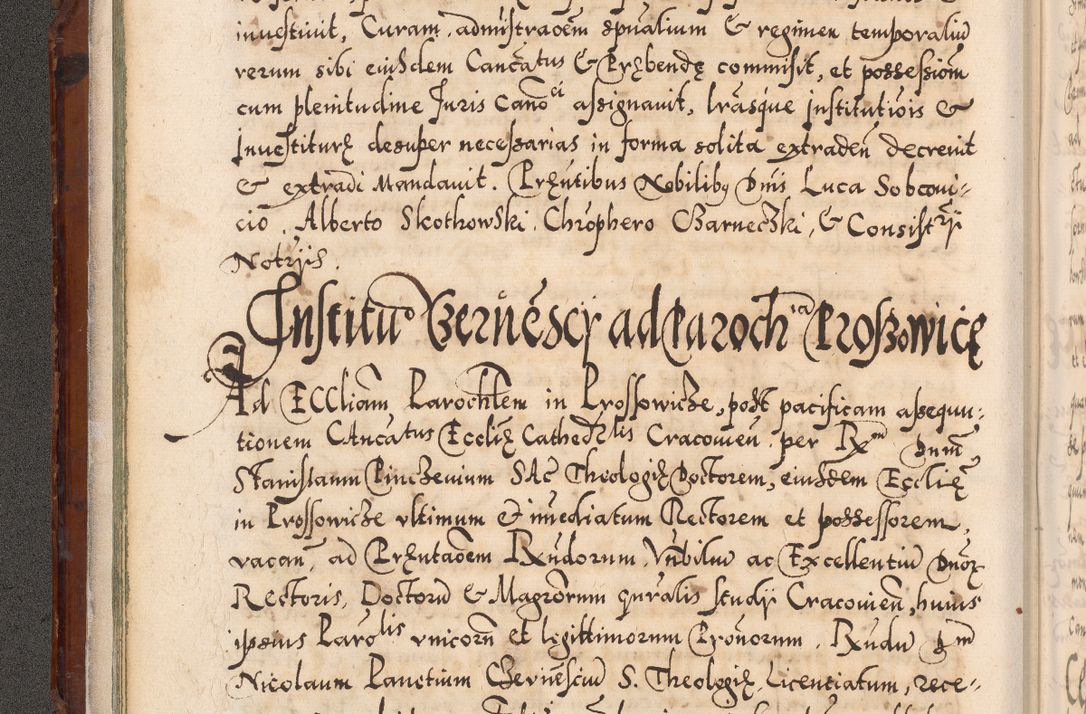 inuestiuit, Curam, admĩstraoẽm spũalium & regimen temporaliũ
rerum sibi eiusdem Cancãtus & Præbendę commisit, et possessiom̃
cum plenitudine Juris Canõci assignauit, lr̃asque Institutiõis &
Inuestiturę desuper necessarias in forma solita extradeñ decreuit
& extradi Mandauit. Præñtibus Nobilibꝫ Dñis Luca Sobconi-
ciõ, Alberto Skothowski, Chrõphero Czarneczki, & Consistrij
Notrijs.
Institũo Gerñẽscij ad Paroch̃ia Proszowicę
Ad Eccliam Parochlem in Prossowicze, post pacificam assequu-
tionem Cancãtus Eccliæ Cathedrlis Cracouien̄, per Rxm Dnm̃
Stanislaum Pinczeuium Sac Theologię Doctorem, eiusdem Eccliæ
in Prossowicze vltimum & im̃ediatum Rectorem et possessorem,
vacan̄, ad Præñtaoẽm Rxũdorum, Vñbiliũ ac Excellentiũ Dnõꝝ
Rectoris, Doctorũ & Magrõrum gñralis studij Cracouien̄, huius
ipsius Parolis vnicorũ et legittimorum Prõnorum, Rxũdũ Dm̃
Nicolaum Pauetium Czeruẽsciũ S. Theologię Licentiatum, rece-